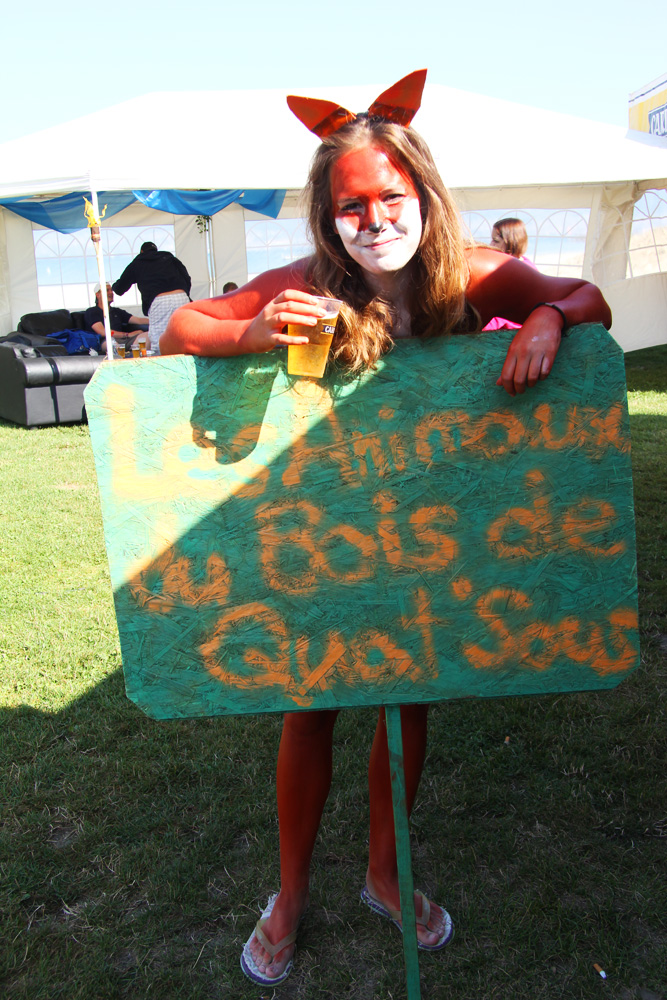 Les Animaux
du Bois de
Quat'Sous